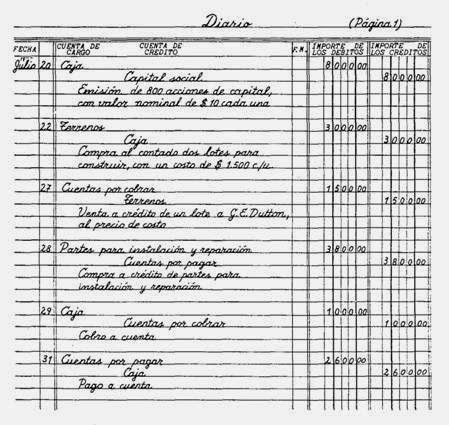 Diario (Página 1)
FECHA CUENTA DE CARGO CUENTA DE CRÉDITO F.M. IMPORTE DE LOS DEBITOS IMPORTE DE LOS CREDITOS
Julio 20 Caja 8 0 0 0 00
Capital social 8 0 0 0 00
Emisión de 800 acciones de capital,
con valor nominal de $10 cada una
22 Terrenos 3 0 0 0 00
Caja 3 0 0 0 00
Compra al contado dos lotes para
construir, con un costo de $1.500 c/u.
27 Cuentas por cobrar 1 5 0 0 00
Terrenos 1 5 0 0 00
Venta a crédito de un lote a G.E. Dutton,
al precio de costo
28 Partes para instalación y reparación 3 8 0 0 00
Cuentas por pagar 3 8 0 0 00
Compra a crédito de partes para
instalación y reparación
29 Caja 1 0 0 0 00
Cuentas por cobrar 1 0 0 0 00
Cobro a cuenta
31 Cuentas por pagar 2 6 0 0 00
Caja 2 6 0 0 00
Pago a cuenta